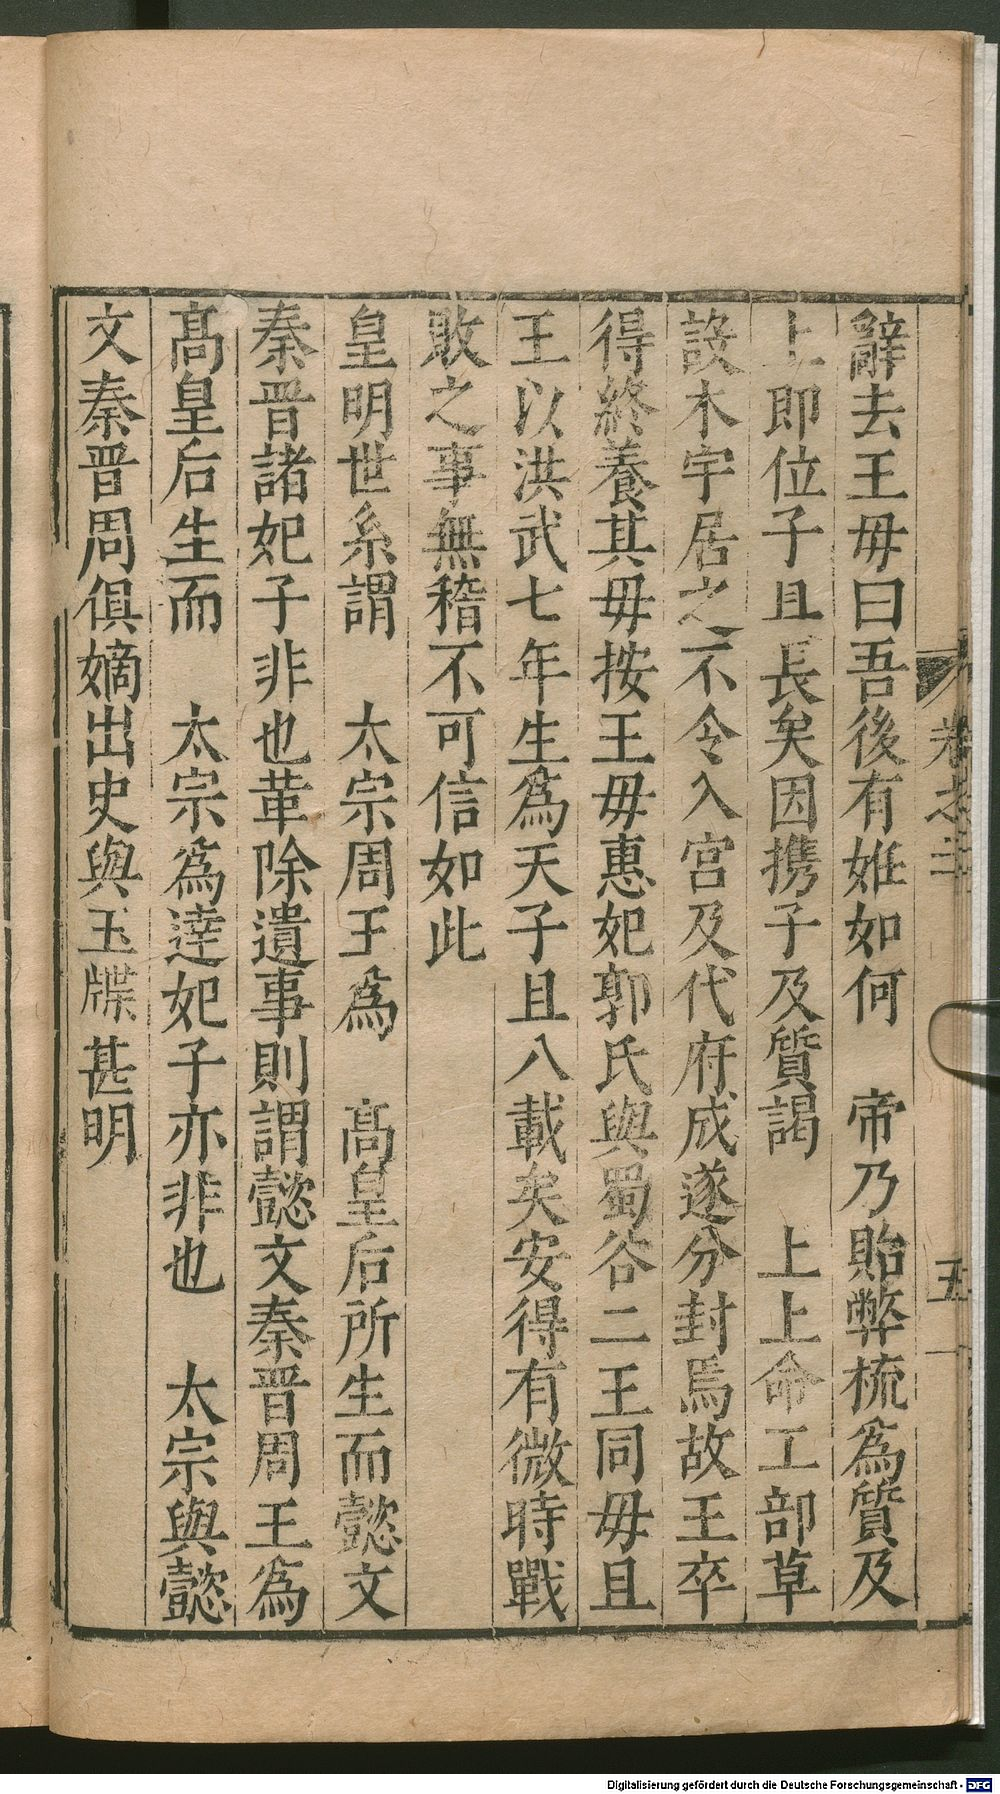 辭去王毋曰吾後有娠如何　帝乃貽弊梳爲質及
上即位子且長矣因携子及質謁　上上命工部草
設木宇居之不令入宫及代府成遂分封焉故王卒
得終養其毋按王毋惠妃郭氏與蜀谷二王同毋且
王以洪武七年生爲天子且八載矣安得有微時戰
敗之事無稽不可信如此
皇明世系謂　太宗周王爲　髙皇后所生而懿文
秦晋諸妃子非也革除遺事則謂懿文秦晋周王爲
髙皇后生而　太宗爲達妃子亦非也　太宗與懿
文秦晋周俱嫡出史與玉牒甚明
卷之二
五
Digitalisierung gefördert durch die Deutsche Forschungsgemeinschaft - DFG